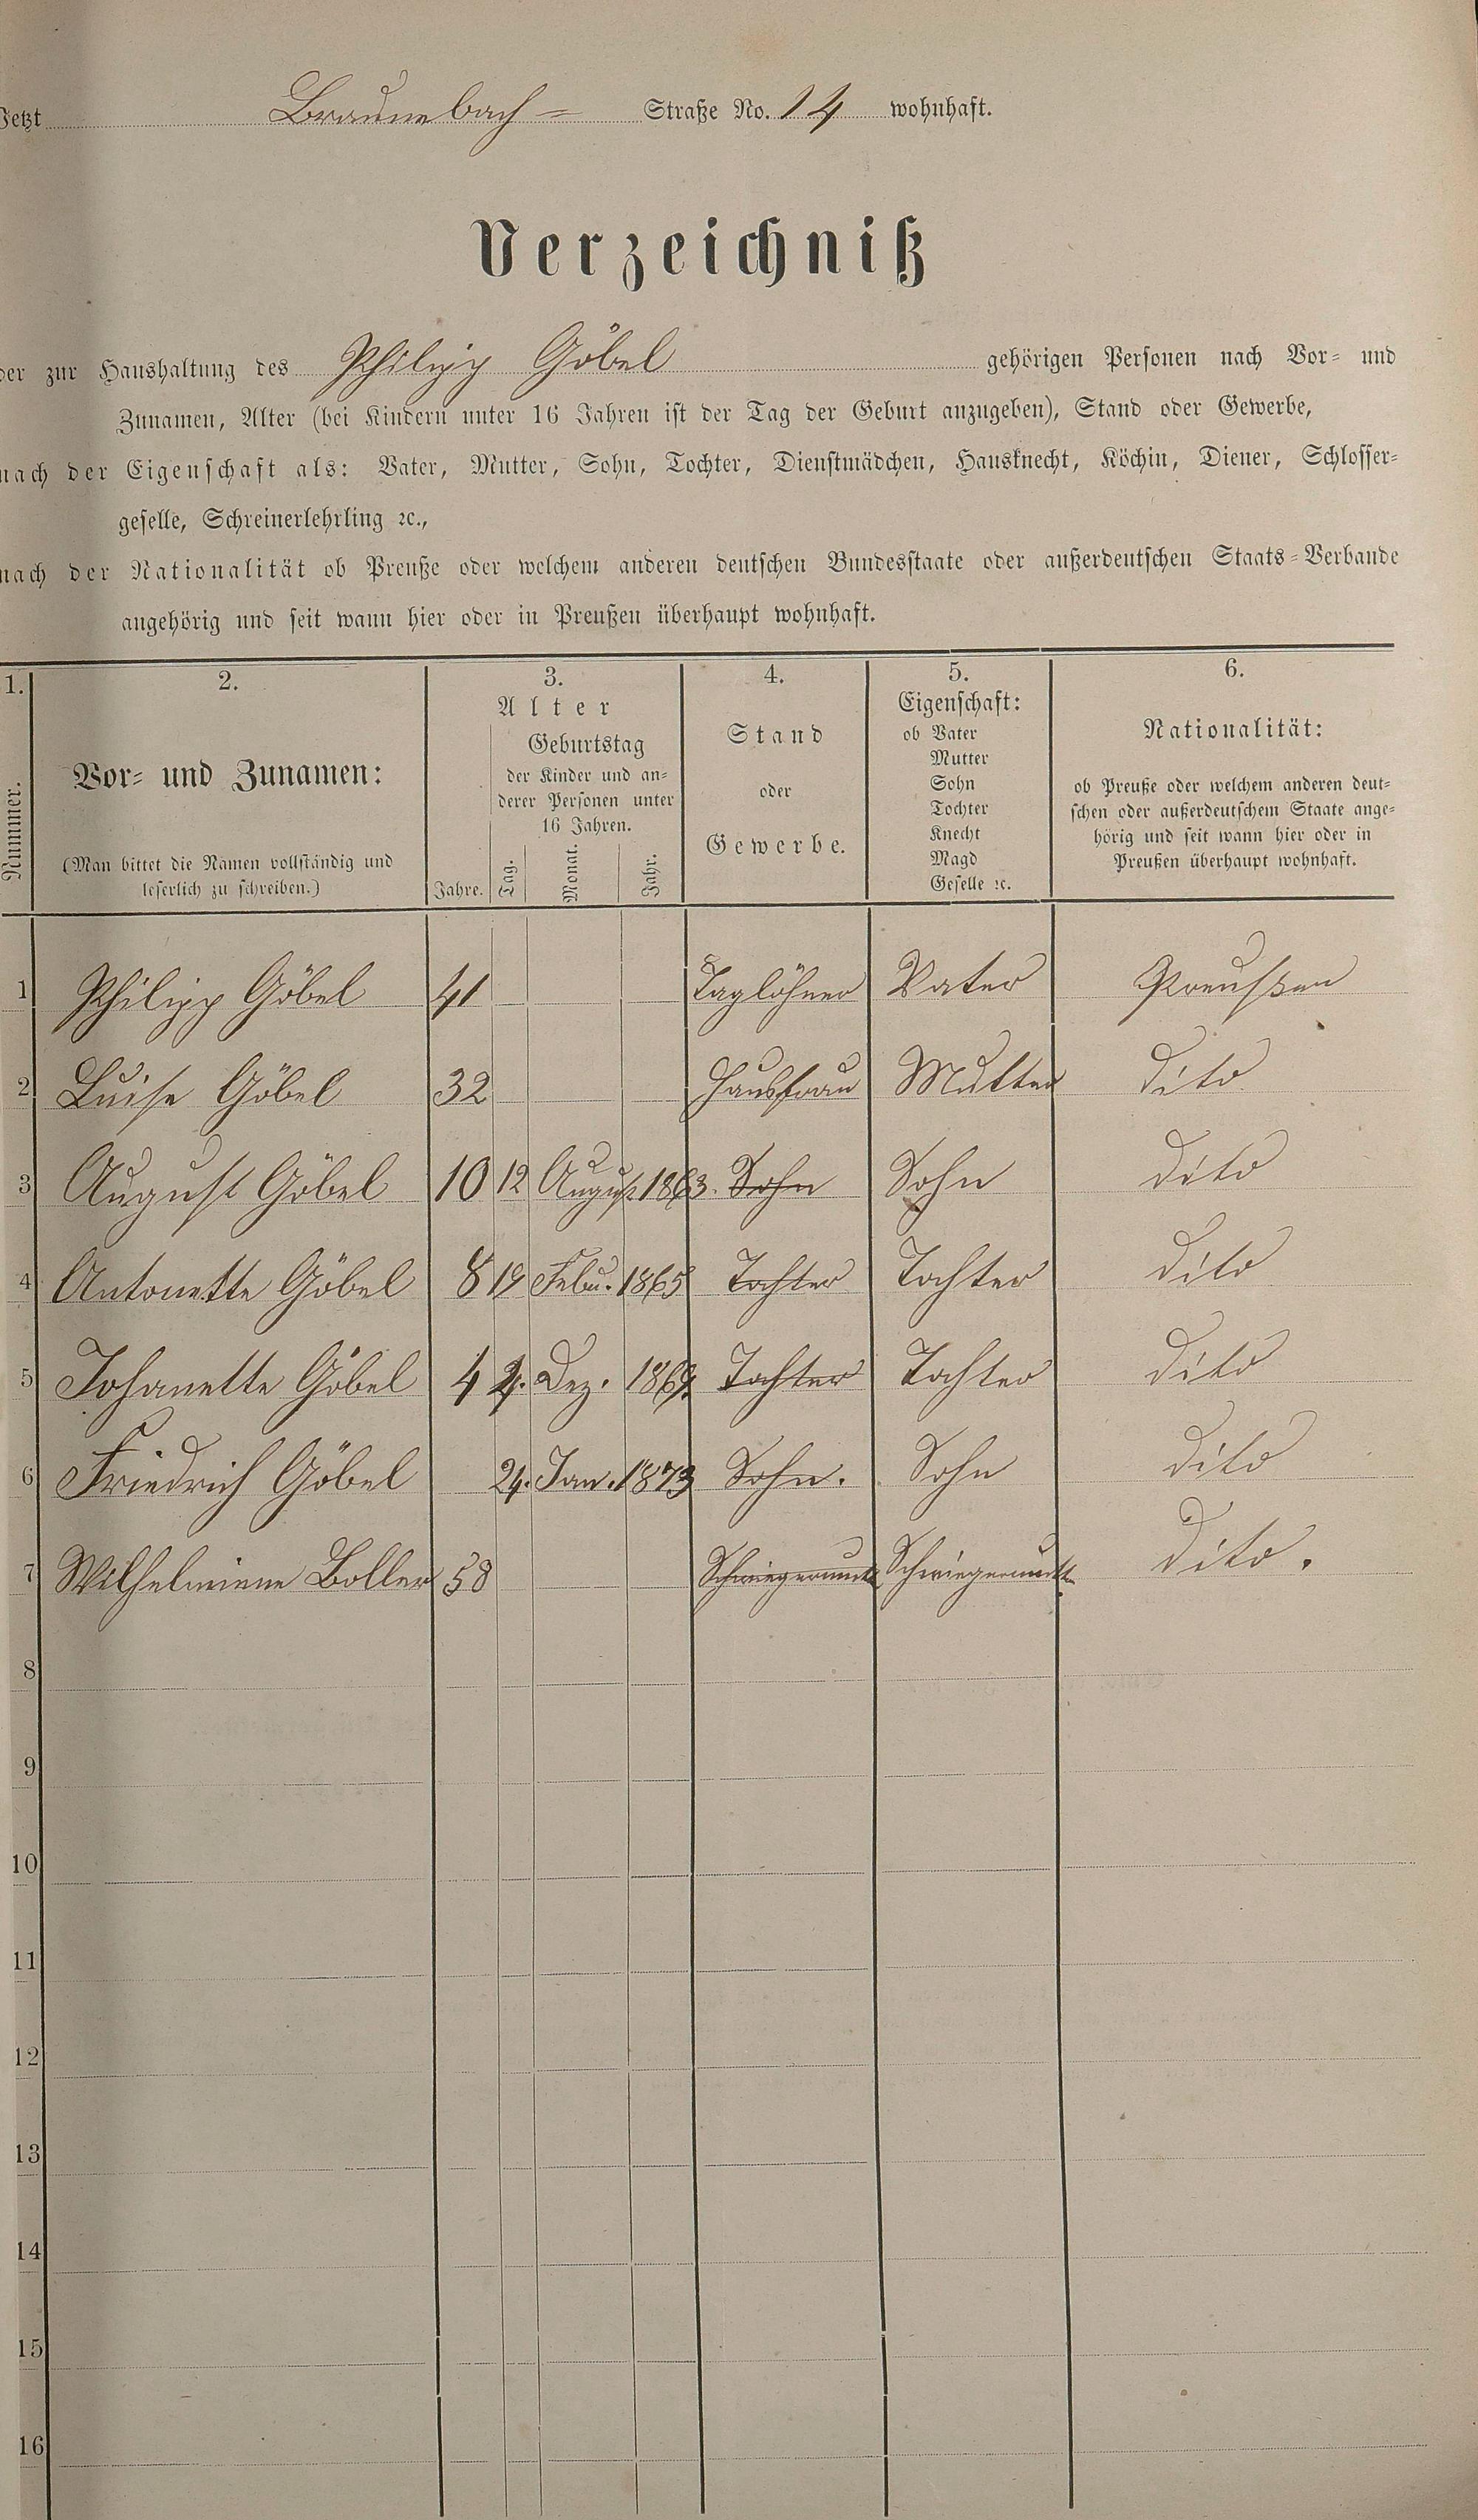 Jetzt Braunebach- Straße No. 14 wohnhaft.
Verzeichniß
der zur Haushaltung des Philipp Göbel gehörigen Personen nach Vor- und
Zunamen, Alter (bei Kindern unter 16 Jahren ist der Tag der Geburt anzugeben), Stand oder Gewerbe,
nach der Eigenschaft als: Vater, Mutter, Sohn, Tochter, Dienstmädchen, Hausknecht, Köchin, Diener, Schlosser-
geselle, Schreinerlehrling ꝛc.,
nach der Nationalität ob Preuße oder welchem anderen deutschen Bundesstaate oder außerdeutschen Staats-Verbande
angehörig und seit wann hier oder in Preußen überhaupt wohnhaft.
1. 2. 3. 4. 5. 6.
Nummer.
Vor- und Zunamen:
(Man bittet die Namen vollständig und
leserlich zu schreiben.)
Alter
Geburtstag
der Kinder und an-
derer Personen unter
16 Jahren.
Jahre. Tag. Monat. Jahr.
Stand
oder
Gewerbe.
Eigenschaft:
ob Vater
Mutter
Sohn
Tochter
Knecht
Magd
Geselle ꝛc.
Nationalität:
ob Preuße oder welchem anderen deut-
schen oder außerdeutschem Staate ange-
hörig und seit wann hier oder in
Preußen überhaupt wohnhaft.
1 Philipp Göbel 41 Taglöhner Vater Preußen
2 Luise Göbel 32 Hausfrau Mutter dito
3 August Göbel 10 12 August 1863. Sohn Sohn dito
4 Antonette Göbel 8 19 Febu. 1865 Tochter Tochter dito
5 Johanette Göbel 4 Dez. 1869. Tochter Tochter dito
6 Friedrich Göbel 24. Jan. 1873 Sohn. Sohn dito
7 Wilhelmiene Boller 58 Schwiegermutt Schwiegermutt. dito.
8
9
10
11
12
13
14
15
16